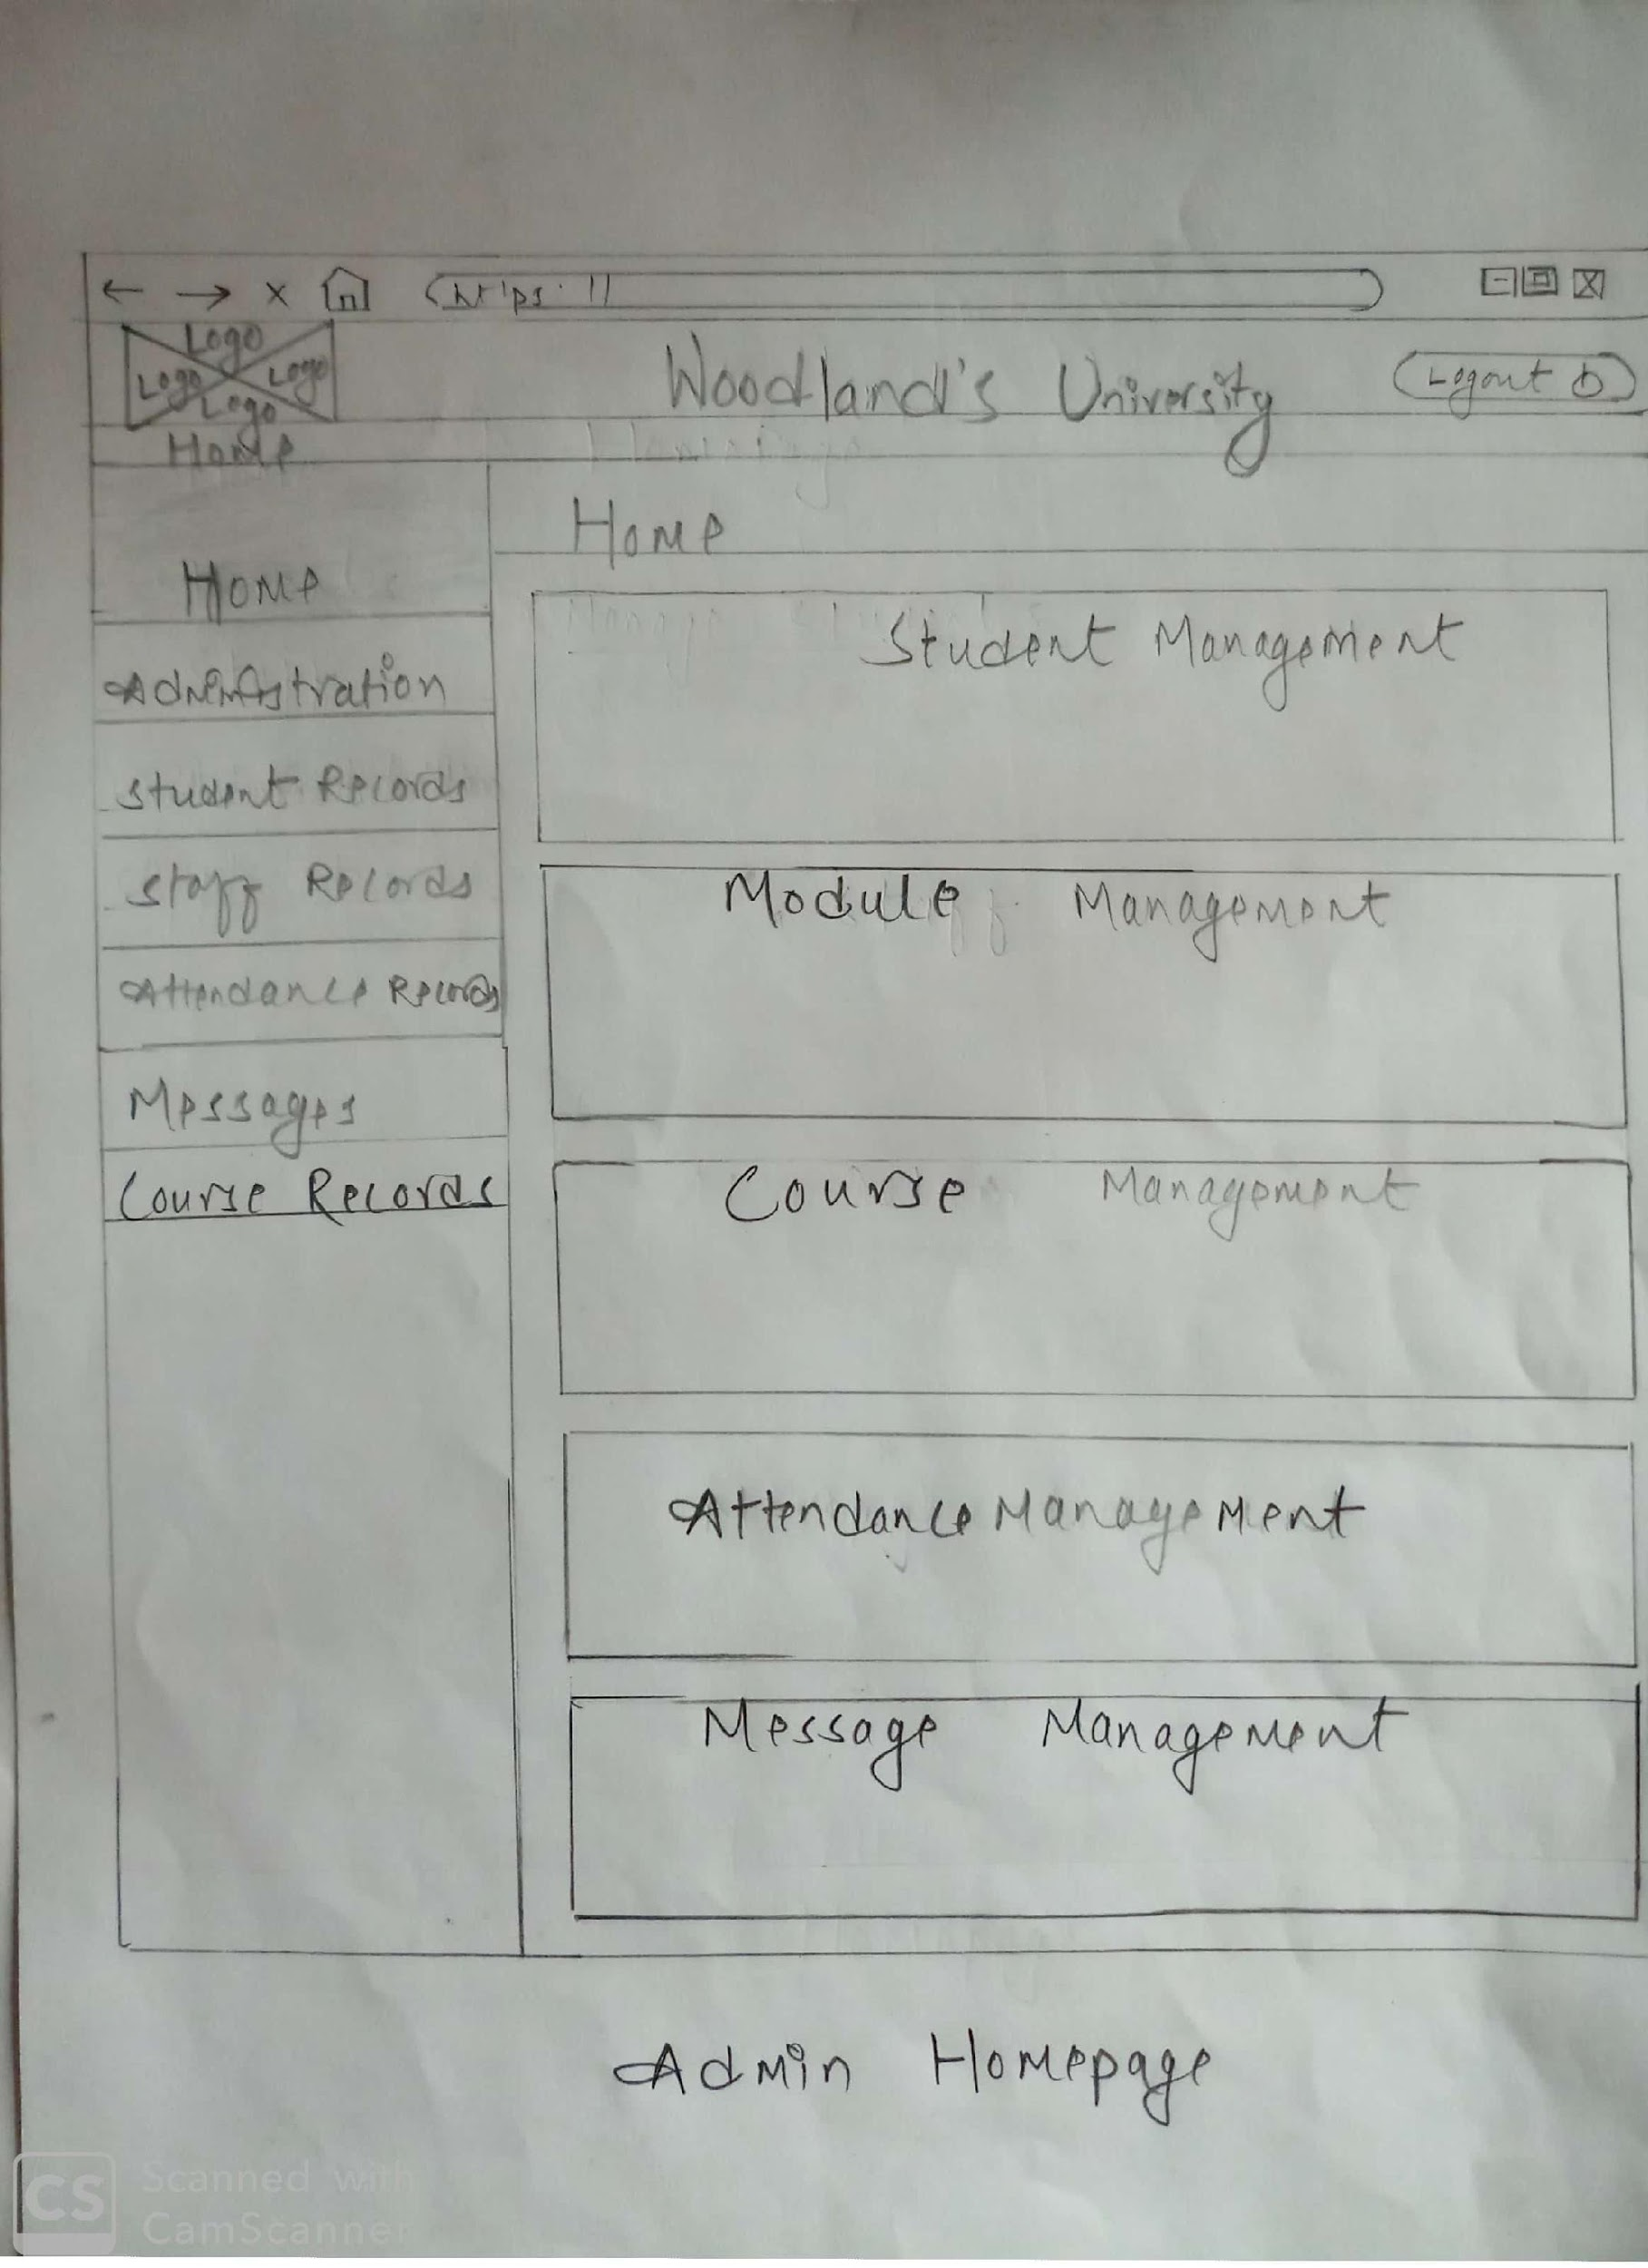 https://
Logo
Logo Logo
Logo
Woodland's University
Logout
Home
Home
Home
Administration
Student Records
Staff Records
Attendance Records
Messages
Course Records
Student Management
Module Management
Course Management
Attendance Management
Message Management
Admin Homepage
CS Scanned with
CamScanner